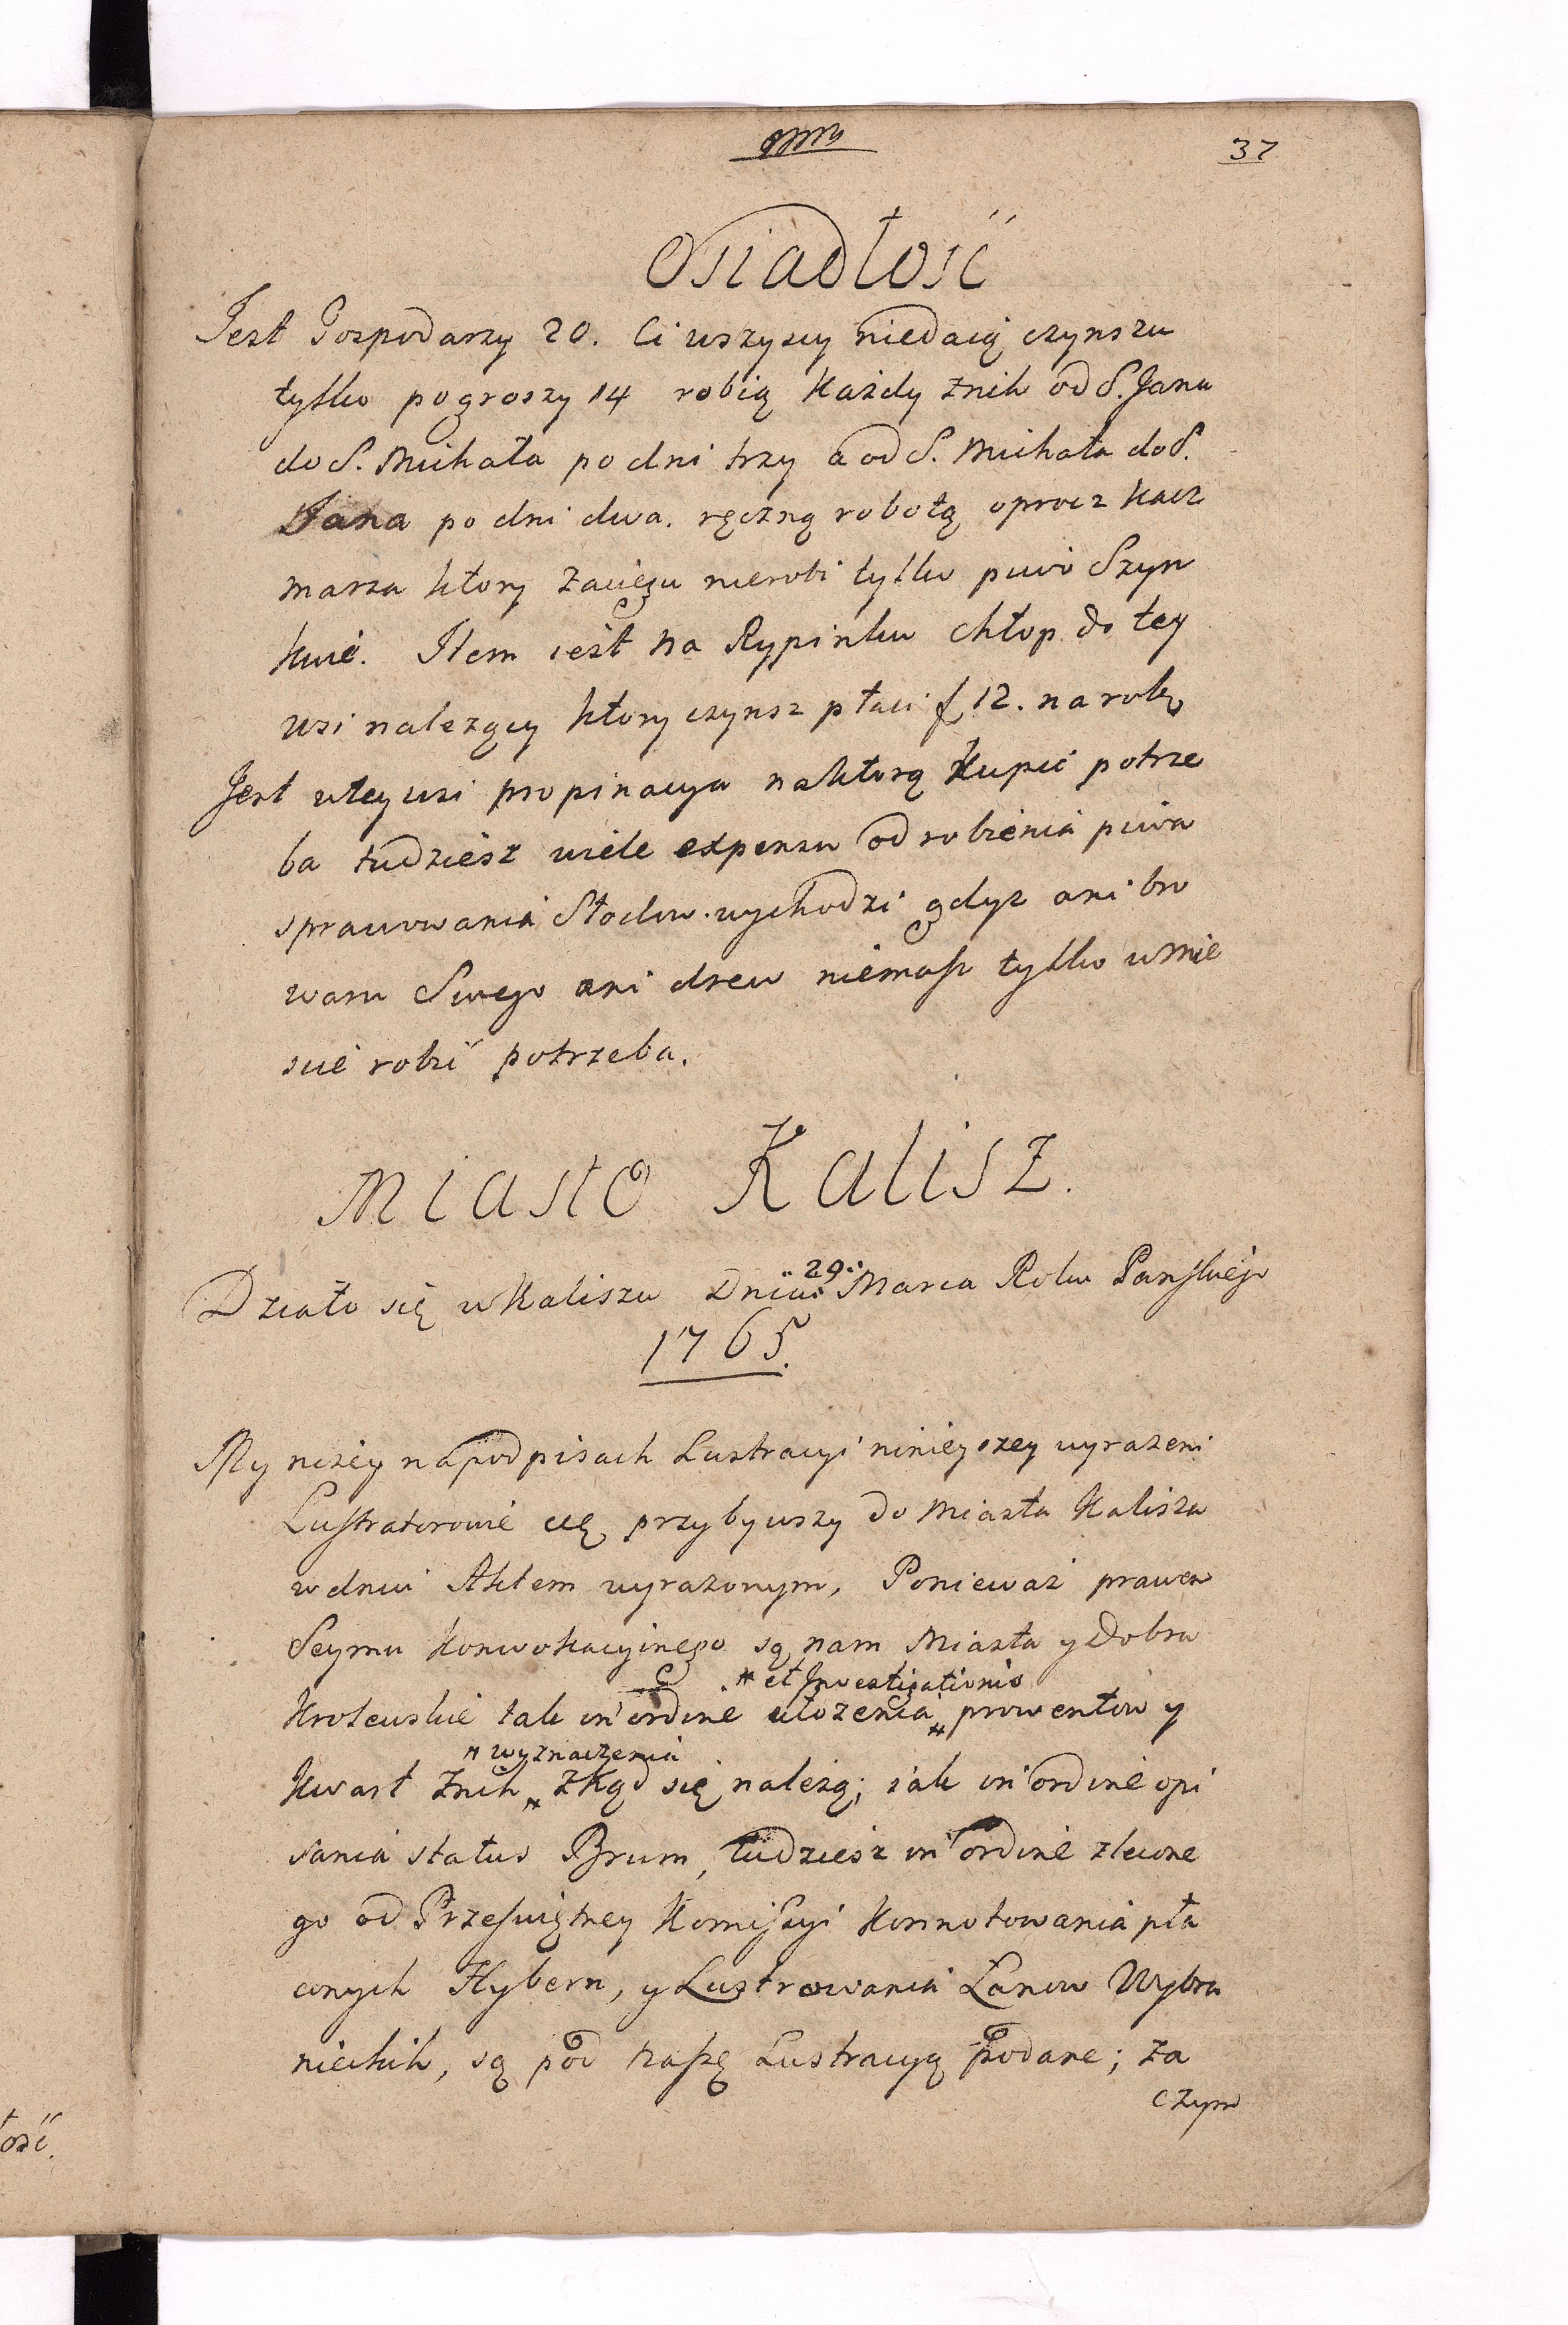 37
Osiadłość
Jest Gospodarzy 20. Ci wszyscy niedaią czynszu
tylko pogroszy 14 robią każdy znich od S. Jana
do S. Michała po dni trzy a od S. Michała do S.
Jana po dni dwa. ręczną robotą oprocz kacz
marza ktory zaciegu nierobi tylko piwo Szyn
kuie. Item iest na Rypinku chłop do tey
wsi należący ktory czynsz płaci f 12. na rok
Jest wtey wsi propinacya naktorą kupić potrze
ba tudziesz wiele expensu od robienia piwa
sprawowania Słodow wychodzi gdyz ani bro
waru Swego ani drew niemasz tylko wmie
scie robić potrzeba.
Miasto Kalisz.
Działo się w Kaliszu Dnia 29 Marca Roku Panskiego
1765.
My niżey napodpisach Lustracyi ninieyszey wyrażeni
Lustratorowie przybywszy do Miasta Kalisza
wdniu Aktem wyrażonym, Ponieważ prawem
Seymu Konwokacyinego są nam Miasta y Dobra
# et Investigationis
Krolewskie tak in ordine ułożenia # prowentow y
# wyznaczenia
Kwart znich # zkąd się należą; iak in ordine opi
sania status Brum, tudziesz in ordine zlecone
go od Przeświętney Komissyi Konnotowania pła
conych Hybern, y Lustrowania Łanow Wybra
nieckich, są pod naszę Lustracyą podane; za
czym
łość.